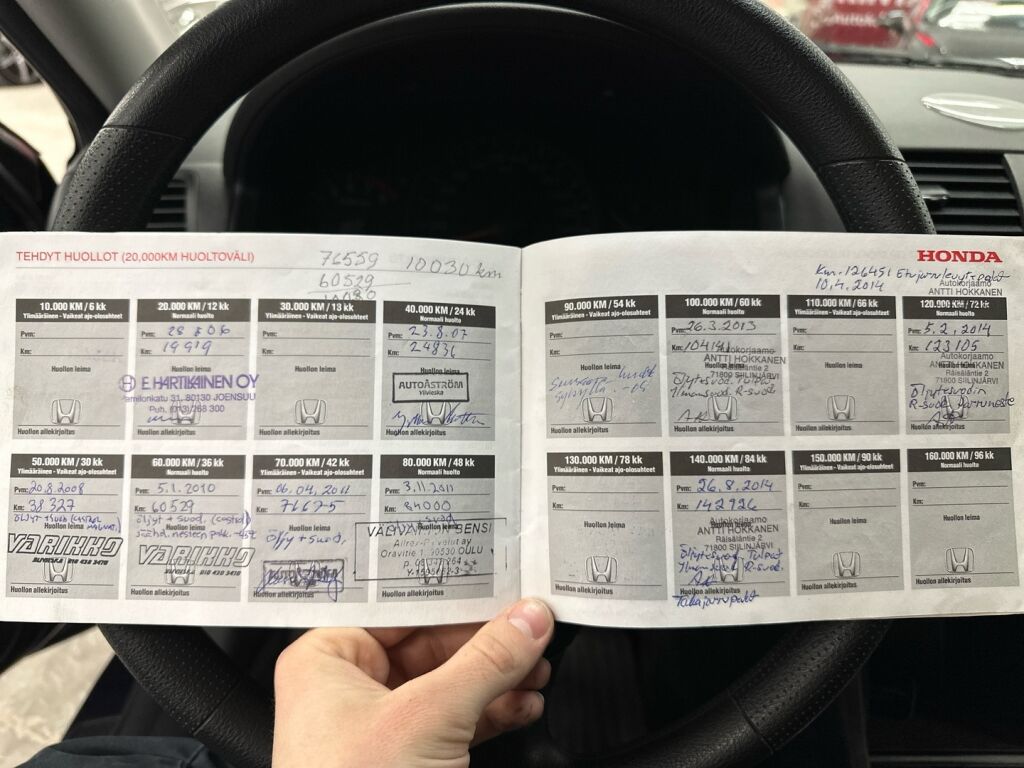 TEHDYT HUOLLOT (20,000KM HUOLTOVÄLI)
76559
10030 km
60529
10.000 KM / 6 kk
Ylimääräinen - Vaikeat ajo-olosuhteet
Pvm:
Km:
Huollon leima
Huollon allekirjoitus
20.000 KM / 12 kk
Normaali huolto
Pvm: 28 8 06
Km: 19919
Huollon leima
E. HARTIKAINEN OY
Pamilonkatu 31, 80130 JOENSUU
Puh. (013) 268 300
Huollon allekirjoitus
30.000 KM / 13 kk
Ylimääräinen - Vaikeat ajo-olosuhteet
Pvm:
Km:
Huollon leima
Huollon allekirjoitus
40.000 KM / 24 kk
Normaali huolto
Pvm: 23.8.07
Km: 24836
Huollon leima
AUTOÅSTRÖM
Ylivieska
Huollon allekirjoitus
50.000 KM / 30 kk
Ylimääräinen - Vaikeat ajo-olosuhteet
Pvm: 20.8.2008
Km: 38 327
Huollon leima
VARIKKO
Huollon allekirjoitus
60.000 KM / 36 kk
Normaali huolto
Pvm: 5.1.2010
Km: 60529
öljyt + suod. (castrol)
Huollon leima
VARIKKO
Huollon allekirjoitus
70.000 KM / 42 kk
Ylimääräinen - Vaikeat ajo-olosuhteet
Pvm: 06.04.2011
Km: 76675
Huollon leima
öljy + suod.
Huollon allekirjoitus
80.000 KM / 48 kk
Normaali huolto
Pvm: 3.11.2011
Km: 84000
Huollon leima
OULU
Huollon allekirjoitus
HONDA
Km. 126451 Etujarrulevyt+palat
10.4.2014
Autokorjaamo
ANTTI HOKKANEN
90.000 KM / 54 kk
Ylimääräinen - Vaikeat ajo-olosuhteet
Pvm:
Km:
Huollon leima
Huollon allekirjoitus
100.000 KM / 60 kk
Normaali huolto
Pvm: 26.3.2013
Km: 104141
Autokorjaamo
ANTTI HOKKANEN
Räisäläntie 2
71800 SIILINJÄRVI
Öljytsuod. Tulpat
Ilmansuod. R-suod.
AH
Huollon allekirjoitus
110.000 KM / 66 kk
Ylimääräinen - Vaikeat ajo-olosuhteet
Pvm:
Km:
Huollon leima
Huollon allekirjoitus
120.000 KM / 72 kk
Normaali huolto
Pvm: 5.2.2014
Km: 123105
Autokorjaamo
ANTTI HOKKANEN
Räisäläntie 2
71800 SIILINJÄRVI
R-suod. Jarruneste
Huollon allekirjoitus
130.000 KM / 78 kk
Ylimääräinen - Vaikeat ajo-olosuhteet
Pvm:
Km:
Huollon leima
Huollon allekirjoitus
140.000 KM / 84 kk
Normaali huolto
Pvm: 26.8.2014
Km: 142926
Autokorjaamo
ANTTI HOKKANEN
Räisäläntie 2
71800 SIILINJÄRVI
Öljytsuod. Tulpat
Ilmansuod. R-suod.
AH
Huollon allekirjoitus
Takajarrupalat
150.000 KM / 90 kk
Ylimääräinen - Vaikeat ajo-olosuhteet
Pvm:
Km:
Huollon leima
Huollon allekirjoitus
160.000 KM / 96 kk
Normaali huolto
Pvm:
Km:
Huollon leima
Huollon allekirjoitus